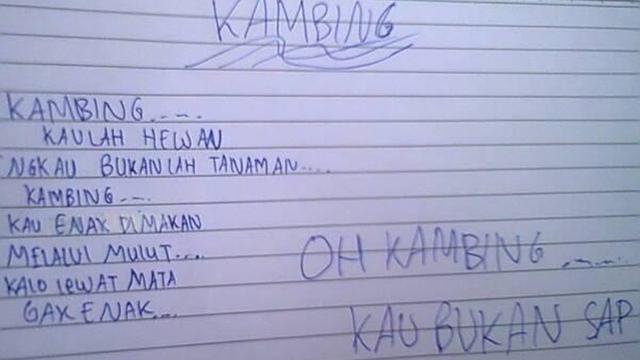 KAMBING
KAMBING....
KAULAH HEWAN
NGKAU BUKANLAH TANAMAN....
KAMBING....
KAU ENAK DIMAKAN
MELALUI MULUT....
KALO LEWAT MATA
GAK ENAK....
OH KAMBING .....
KAU BUKAN SAP